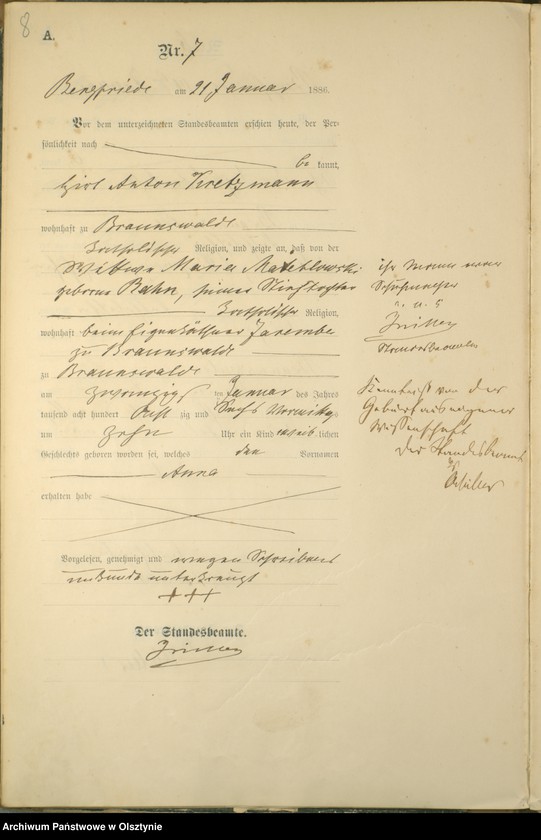 8
A.
Nr. 7
Bergfriede am 21 Januar 1886.
Vor dem unterzeichneten Standesbeamten erschien heute, der Per-
sönlichkeit nach
be kannt,
Anton Kretzmann
wohnhaft zu Braunswalde
katholischer Religion, und zeigte an, daß von der
Wittwe Maria
geborene Rahn, seiner Stieftochter
katholischer Religion,
wohnhaft beim Eigenkäthner Zarembe
zu Braunswalde
zu Braunswalde
am zwanzigsten Januar des Jahres
tausend acht hundert acht zig und sechs Vormittags
um zehn Uhr ein Kind weib lichen
Geschlechts geboren worden sei, welches den Vornamen
Anna
erhalten habe
Vorgelesen, genehmigt und wegen Schreibens
unkunde unterkreuzt
+++
Der Standesbeamte.
ihr Mann war
Standesbeamter
Kenntniß von der
Geburt aus eigener
Wissenschaft
der Standesbeamte
Archiwum Państwowe w Olsztynie